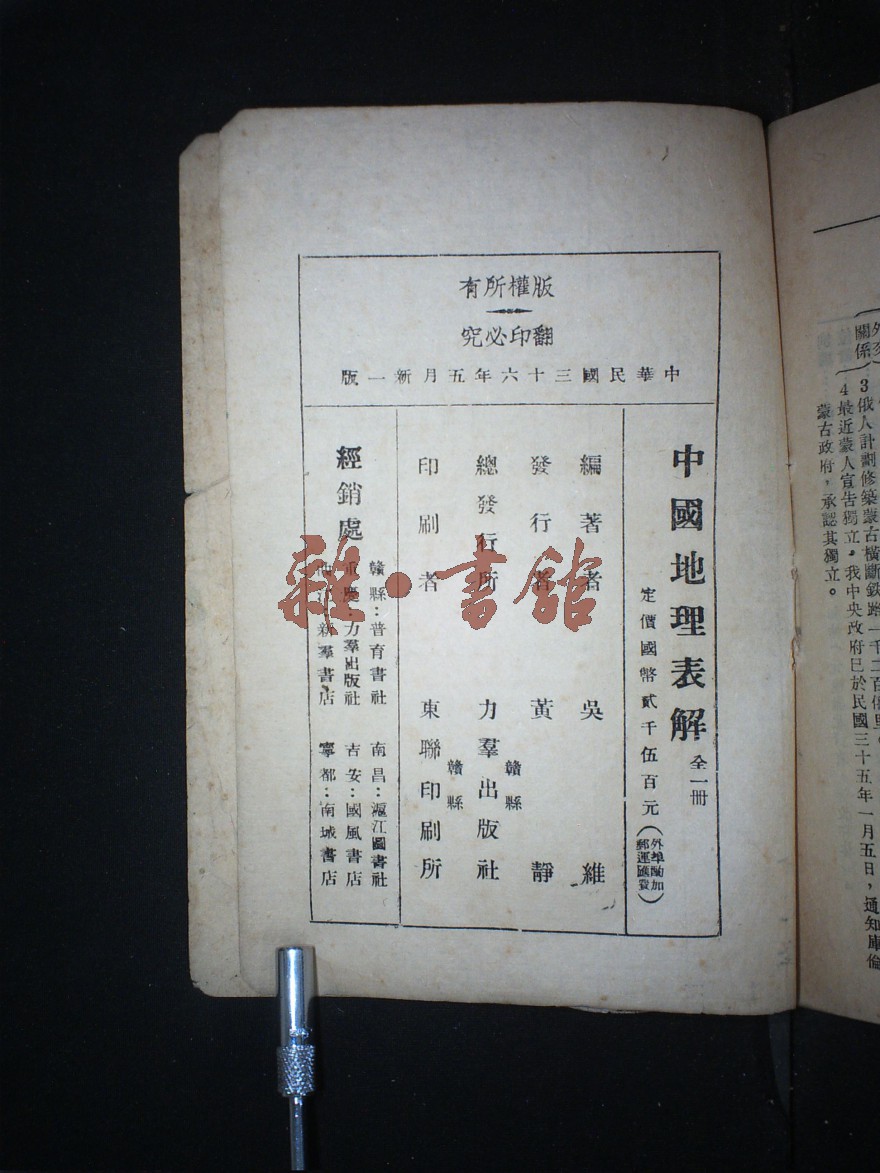 版權所有
翻印必究
中華民國三十六年五月新一版
中國地理表解 全一冊
定價國幣貳千伍百元
編著者 吳維
發行者 黃靜
總發行所 贛縣 力羣出版社
印刷者 贛縣 東聯印刷所
經銷處
贛縣：普育書社 南昌：滬江圖書社
重慶：力羣出版社 吉安：國風書店
新羣書店 寧都：南城書店
雜·書館
關係
3 俄人計劃修築蒙古橫斷鉄路一千二百俄里。
4 最近蒙人宣告獨立。我中央政府已於民國三十五年一月五日，通知庫倫
蒙古政府，承認其獨立。